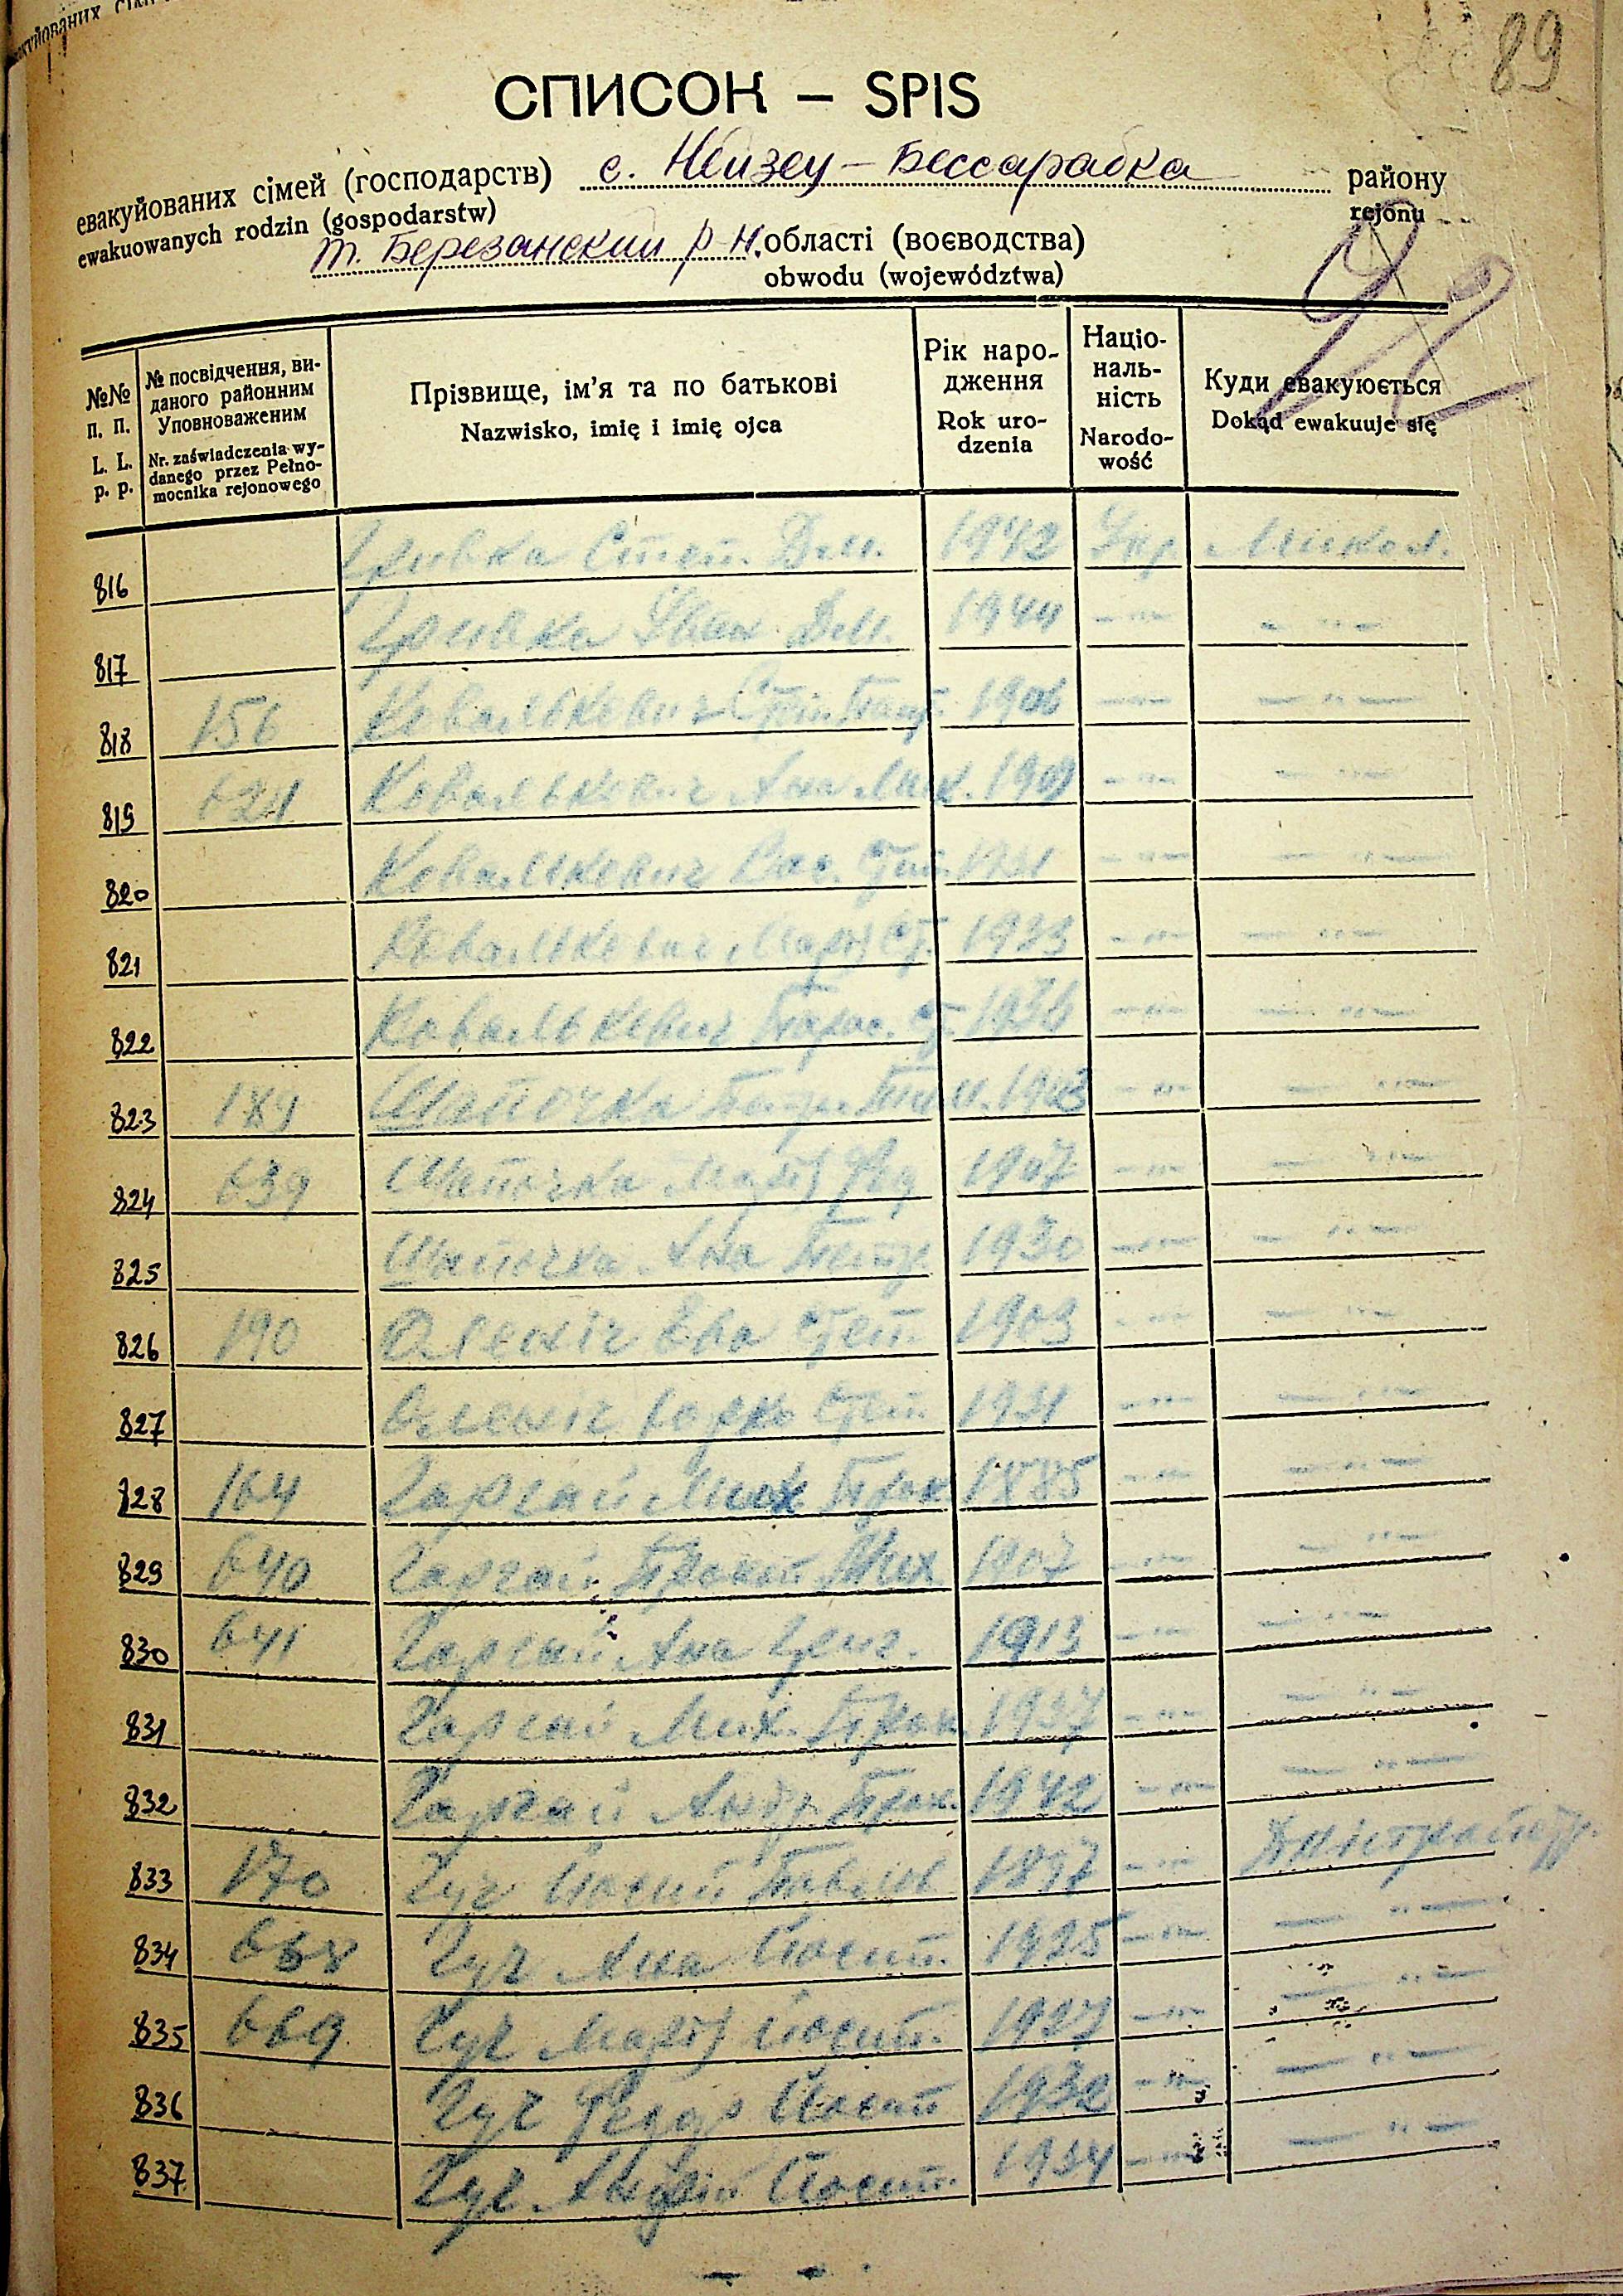 89
СПИСОК — SPIS
евакуйованих сімей (господарств) с. Нейзец – Бессарабка району
ewakuowanych rodzin (gospodarstw) rejonu
т. Березанский р-н. області (воєводства)
obwodu (województwa)
№№ п. п. L. L. p. p.
№ посвідчення, виданого районним Уповноваженим Nr. zaświadczenia wydanego przez Pełnomocnika rejonowego
Прізвище, ім'я та по батькові Nazwisko, imię i imię ojca
Рік народження Rok urodzenia
Національність Narodowość
Куди евакуюється Dokąd ewakuuje się
816 Степ. Дм. 1942 Укр. Микол.
817 Іван Дм. 1944 -"- -"-
818 156 Ковалькевич 1906 -"- -"-
819 624 Ковалькевич Ана Мик. -"- -"-
820 Ковалькевич Вас. Степ. 1931 -"- -"-
821 Ковалькевич Маріј Ст. 1933 -"- -"-
822 Ковалькевич Парас. Ст. 1936 -"- -"-
823 189 Шапочка Петр. -"- -"-
824 639 Шапочка Маріј Фед 1907 -"- -"-
825 Шапочка Ана Петр. 1930 -"- -"-
826 190 Оленіч Ева Степ. 1903 -"- -"-
827 Оленіч Степ. 1931 -"- -"-
828 164 Гаргай Мих. Прок 1885 -"- -"-
829 640 Гаргай Прокоп Мих 1907 -"- -"-
830 641 Гаргай Ана 1913 -"- -"-
831 Гаргай Мих. Прок. 1937 -"- -"-
832 Гаргай Андр. Прок. 1942 -"- -"-
833 170 Йосип Павлов 1897 -"-
834 668 Ана Йосип. 1925 -"- -"-
835 669 Маріј Йосип. 1927 -"- -"-
836 Федор Йосип 1932 -"- -"-
837 Андрій Йосип. 1934 -"- -"-